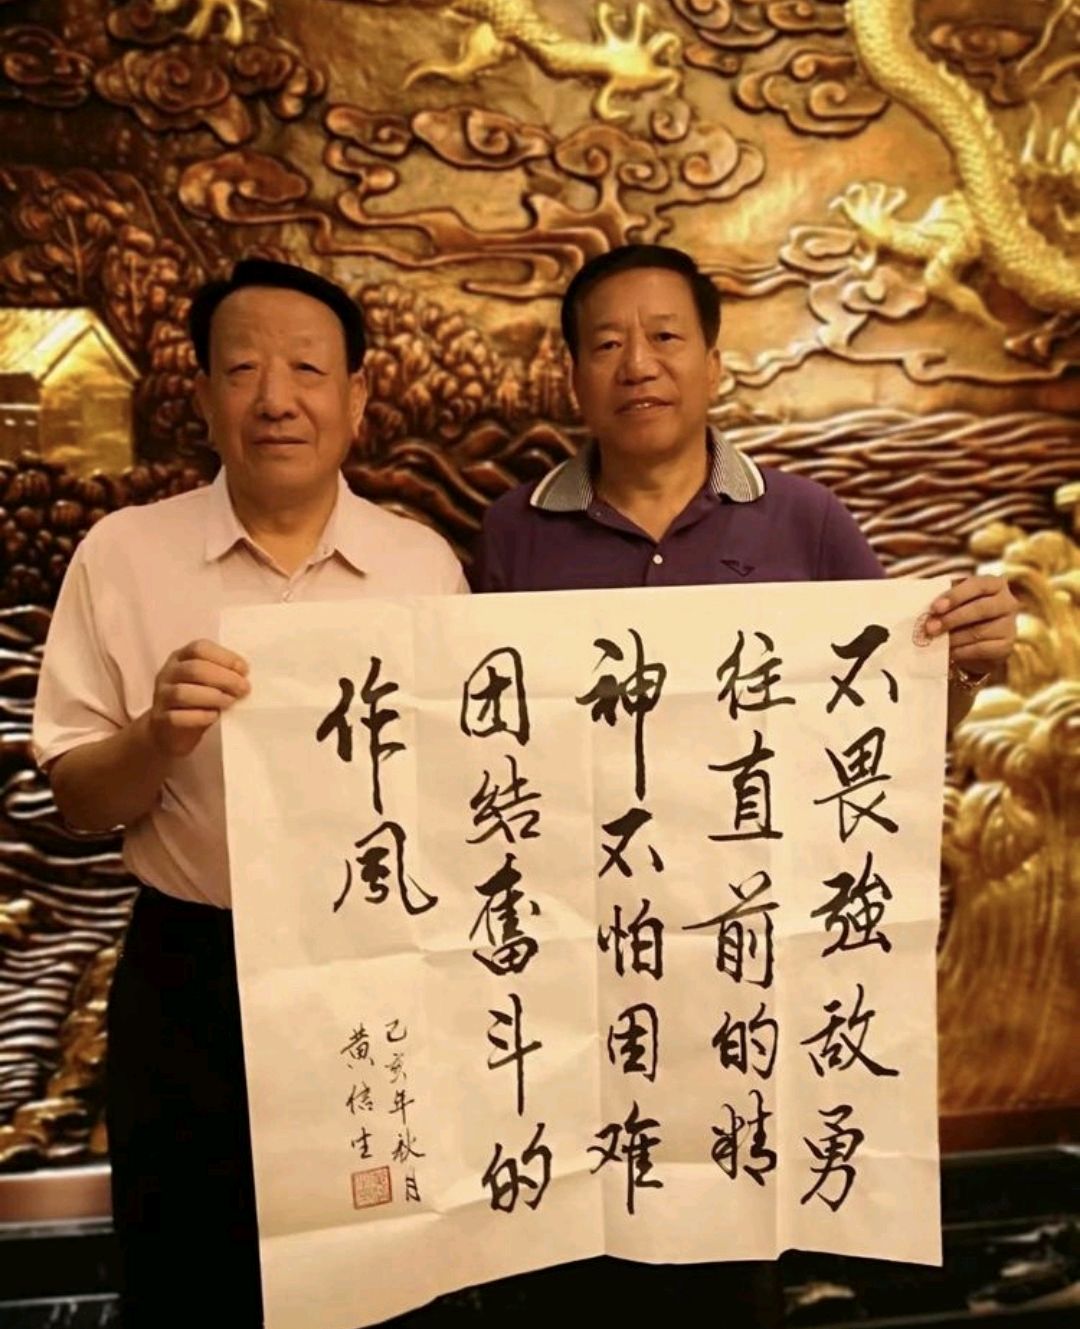 不畏強敌勇
往直前的精
神不怕困难
团结奮斗的
作风
己亥年秋月
黄信生